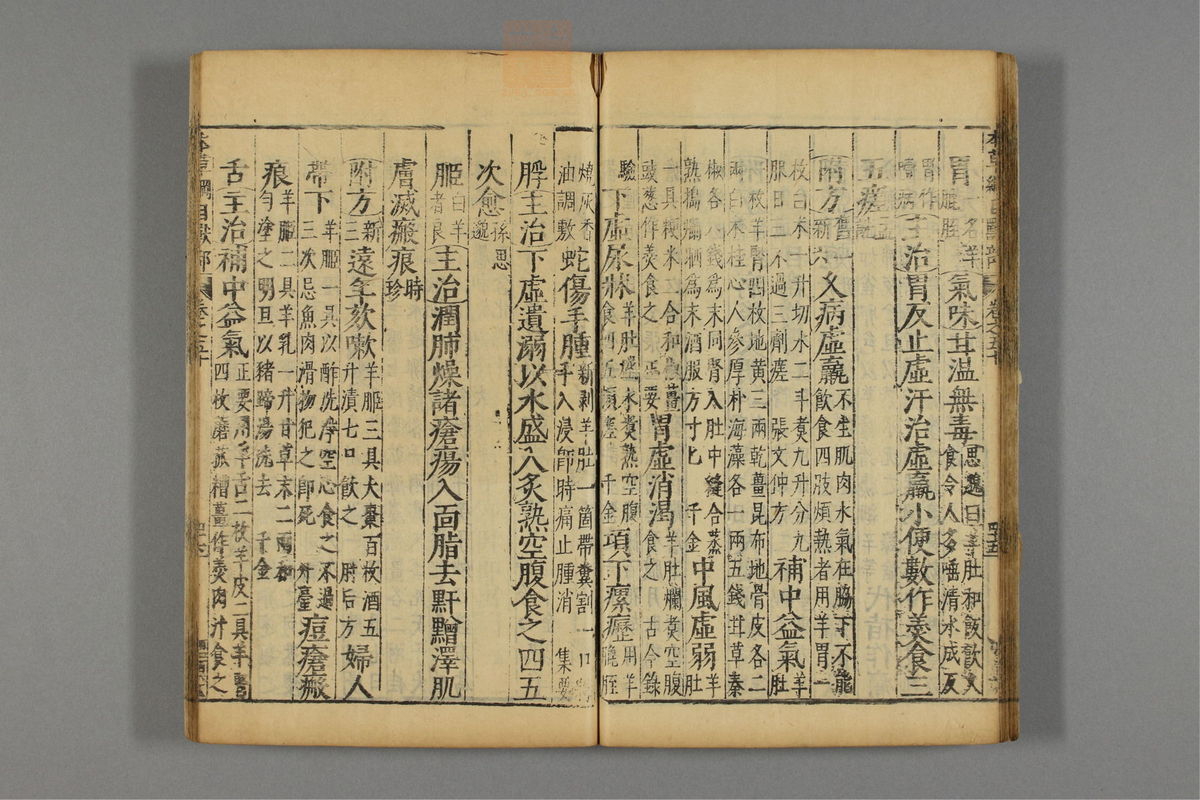 本草綱目獸部 卷之五十 四十五
胃一名羊膍胵氣味甘溫無毒思邈曰羊肚和飯飲久食令人多唾清水成反
胃作噎病主治胃反止虛汗治虛羸小便數作羹食三
五瘥孟詵
附方舊一新六久病虛羸不生肌肉水氣在脇下不能飲食四肢煩熱者用羊胃一
枚白朮一升切水二斗煮九升分九服日三不過三劑瘥 張文仲方 補中益氣羊肚
一枚羊腎四枚地黃三兩乾薑昆布地骨皮各二兩白朮桂心人參厚朴海藻各一兩五錢甘草秦
椒各六錢爲末同腎入肚中縫合蒸熟搗爛晒爲末酒服方寸匕 千金 中風虛弱羊肚
一具粳米二合和椒薑豉葱作羹食之 正要 胃虛消渴羊肚爛煮空腹食之 古今錄
驗 下虛尿牀羊肚盛水煮熟空腹食四五頓瘥 千金 項下瘰癧用羊膍胵
燒灰香油調敷 蛇傷手腫新剝羊肚一箇帶糞割一口手入浸即時痛止腫消 集要
脬主治下虛遺溺以水盛入炙熟空腹食之四五
次愈孫思邈
䐈白羊者良主治潤肺燥諸瘡瘍入面脂去䵟䵳澤肌
膚滅瘢痕時珍
附方新三遠年欬嗽羊䐈三具大棗百枚酒五升漬七日飲之 肘后方 婦人
帶下羊䐈一具以酢洗淨空心食之不過三次忌魚肉滑物犯之即死 外臺 痘瘡瘢
痕羊䐈二具羊乳一升甘草末二兩和勻塗之明旦以豬蹄湯洗去 千金
舌主治補中益氣正要用羊舌二枚羊皮二具羊腎四枚蘑菰糟薑作羹肉汁食之
本草綱目獸部 卷之五十